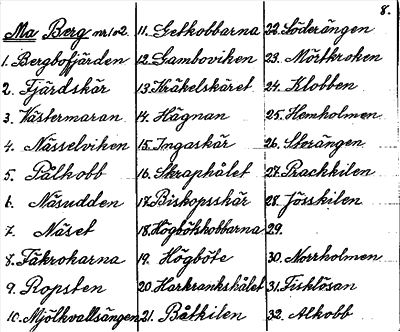 8.
Ma Berg nr 1 o 2.
1. Bergbofjärden
2. Fjärdskär
3. Västermaran
4. Nässelviken
5. Pålkobb
6. Näsudden
7. Näset
8. Fäkrokarna
9. Ropsten
10. Mjölkvallsängen
11. Getkobbarna
12. Gamboviken
13. Kråkelskäret
14. Hägnan
15. Ingaskär
16. Skraphålet
17. Biskopsskär
18. Högbötskobbarna
19. Högböte
20. Harkrankshålet
21. Båtkilen
22. Söderängen
23. Mörtkroken
24. Klobben
25. Hemholmen
26. Storängen
27. Prackkilen
28. Jösskilen
29.
30. Norrholmen
31. Fisklösan
32. Alkobb